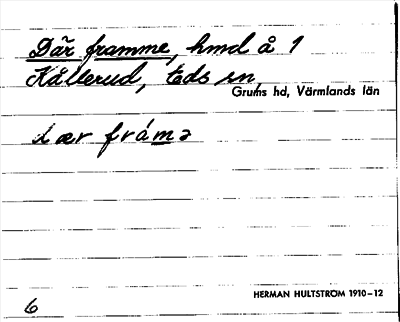 Där framme, hmd å 1
Kållerud, Eds sn,
Grums hd, Värmlands län
dær frámə
HERMAN HULTSTRÖM 1910–12
6